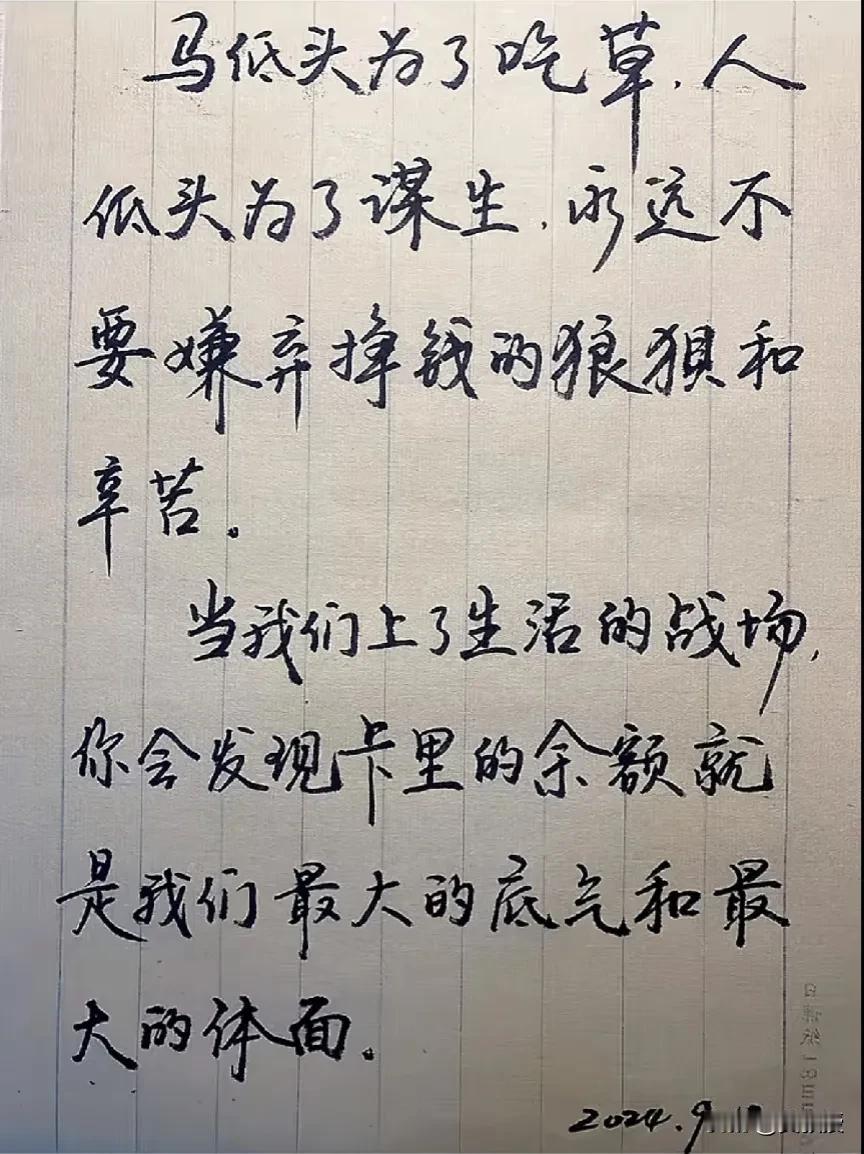 马低头为了吃草,人
低头为了谋生,永远不
要嫌弃挣钱的狼狈和
辛苦。
当我们上了生活的战场,
你会发现卡里的余额就
是我们最大的底气和最
大的体面。
2024.9